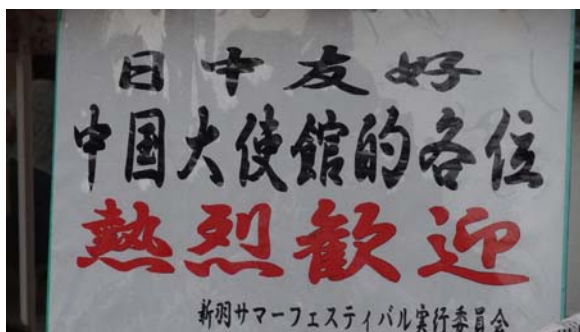 日中友好
中国大使館的各位
熱烈歓迎
新羽サマーフェスティバル実行委員会